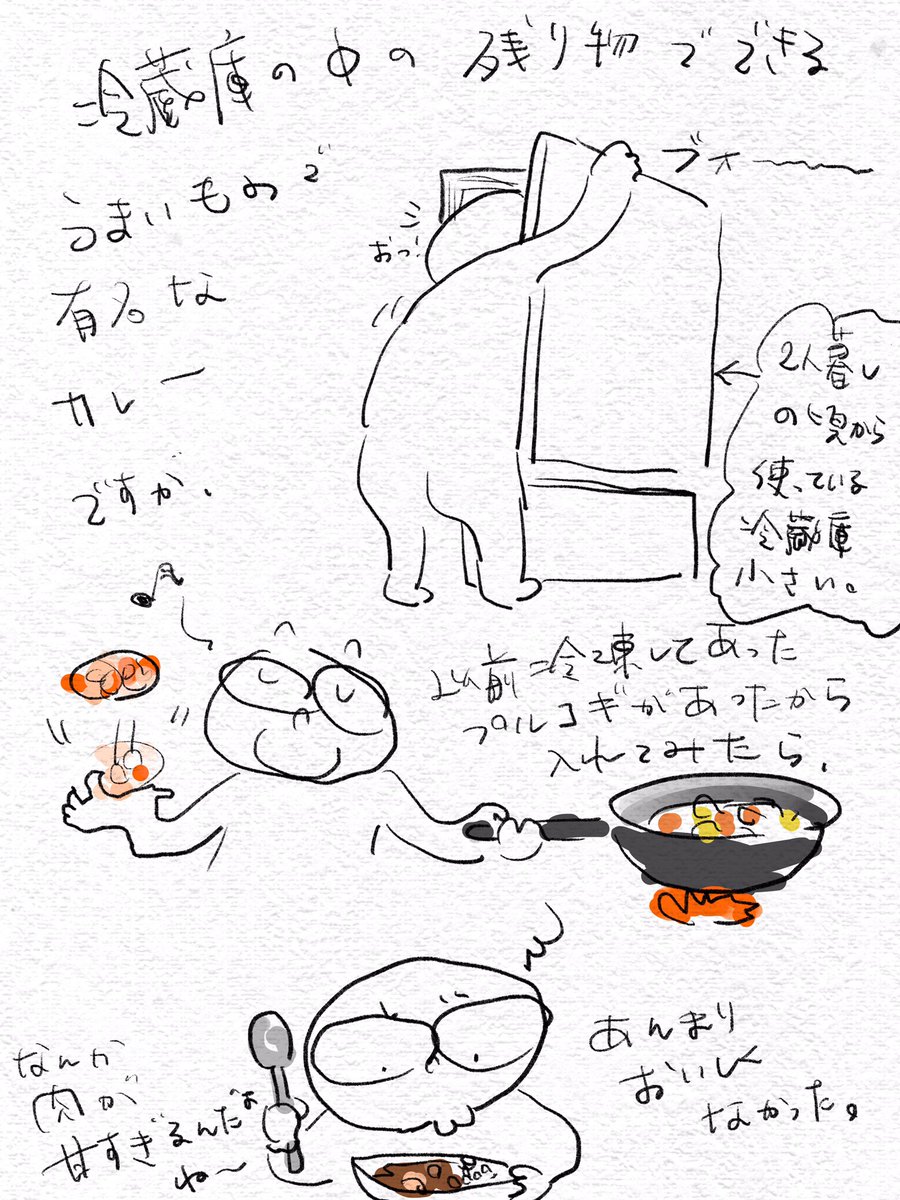 冷蔵庫の中の残り物でできる
うまいもので
有名な
カレー
ですが、
ブオー
おっ!
2人暮し
の頃から
使っている
冷蔵庫
小さい。
以前冷凍してあった
プルコギがあったから
入れてみたら、
なんか
肉が
甘すぎるんだぁ
ね〜
あんまり
おいしく
なかった。